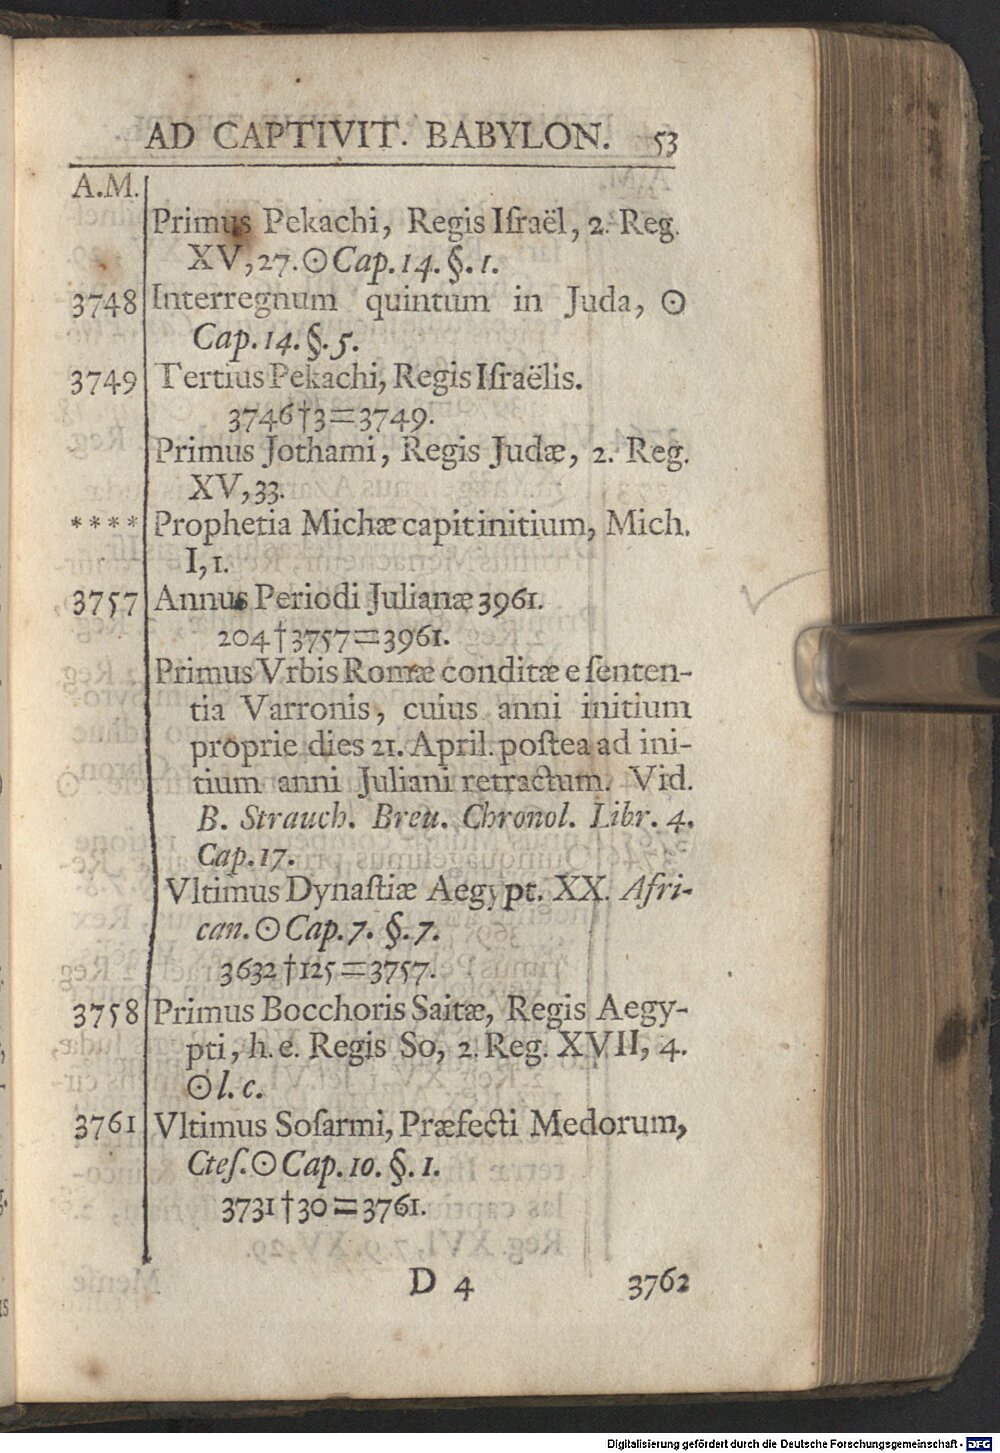 AD CAPTIVIT. BABYLON. 53
A.M.
Primus Pekachi, Regis Iſraël, 2. Reg.
XV, 27. ☉ Cap. 14. §. 1.
3748 Interregnum quintum in Juda, ☉
Cap. 14. §. 5.
3749 Tertius Pekachi, Regis Iſraëlis.
3746 † 3 = 3749.
Primus Jothami, Regis Judæ, 2. Reg.
XV, 33.
**** Prophetia Michæ capit initium, Mich.
I, 1.
3757 Annus Periodi Julianæ 3961.
204 † 3757 = 3961.
Primus Vrbis Romæ conditæ e ſenten-
tia Varronis, cuius anni initium
proprie dies 21. April. poſtea ad ini-
tium anni Juliani retractum. Vid.
B. Strauch. Breu. Chronol. Libr. 4.
Cap. 17.
Vltimus Dynaſtiæ Aegypt. XX. Afri-
can. ☉ Cap. 7. §. 7.
3632 † 125 = 3757.
3758 Primus Bocchoris Saitæ, Regis Aegy-
pti, h. e. Regis So, 2. Reg. XVII, 4.
☉ l. c.
3761 Vltimus Soſarmi, Præfecti Medorum,
Cteſ. ☉ Cap. 10. §. 1.
3731 † 30 = 3761.
D 4 3762
Digitalisierung gefördert durch die Deutsche Forschungsgemeinschaft - DFG